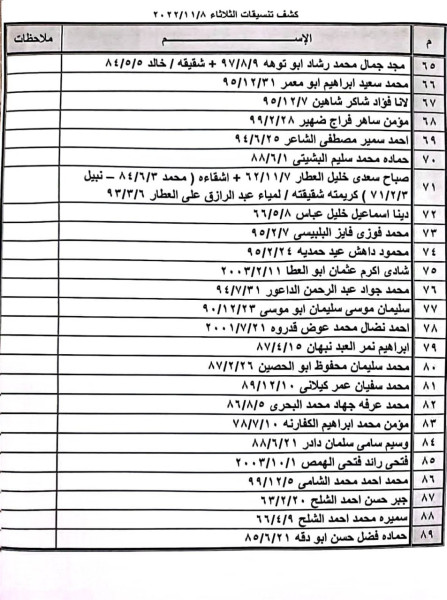 كشف تنسيقات الثلاثاء ٢٠٢٢/١١/٨
م الإســـم ملاحظات
٦٥ مجد جمال محمد رشاد ابو توهه ٩٧/٨/٩ + شقيقه / خالد ٨٤/٥/٥
٦٦ محمد سعيد ابراهيم ابو معمر ٩٥/١٢/٣١
٦٧ لانا فؤاد شاكر شاهين ٩٥/١٢/٧
٦٨ مؤمن ساهر فراج ضهير ٩٩/٢/٢٨
٦٩ احمد سمير مصطفى الشاعر ٩٤/٦/٢٥
٧٠ حماده محمد سليم البشيتى ٨٨/٦/١
٧١ صباح سعدى خليل العطار ٦٢/١١/٧ + اشقاءه ( محمد ٨٤/٦/٣ – نبيل
٧١/٢/٣ ) كريمته شقيقته / لمياء عبد الرازق علي العطار ٩٣/٣/٦
٧٢ دينا اسماعيل خليل عباس ٦٦/٥/٨
٧٣ محمد فوزى فايز البلبيسى ٩٥/٢/٧
٧٤ محمود داهش عيد حمديه ٩٥/٢/٢٤
٧٥ شادى اكرم عثمان ابو العطا ٢٠٠٣/٢/١١
٧٦ محمد جواد عبد الرحمن الداعور ٩٤/٧/٣١
٧٧ سليمان موسى سليمان ابو موسى ٩٠/١٢/٢٣
٧٨ احمد نضال محمد عوض قدروه ٢٠٠١/٧/٢١
٧٩ ابراهيم نمر العبد نبهان ٨٧/٤/١٥
٨٠ محمد سليمان محفوظ ابو الحصين ٨٧/٢/٢٦
٨١ محمد سفيان عمر كيلانى ٨٩/١٢/١٠
٨٢ محمد عرفه جهاد محمد البحرى ٨٦/٨/٥
٨٣ مؤمن محمد ابراهيم الكفارنه ٧٨/٧/١٠
٨٤ وسيم سامى سلمان دادر ٨٨/٦/٢١
٨٥ فتحى رائد فتحى الهمص ٢٠٠٣/١٠/١
٨٦ محمد احمد محمد الشامى ٩٩/١٢/٥
٨٧ جبر حسن احمد الشلح ٦٣/٢/٢٠
٨٨ سميره محمد احمد الشلح ٦٦/٤/٩
٨٩ حماده فضل حسن ابو دقه ٨٥/٦/٢١